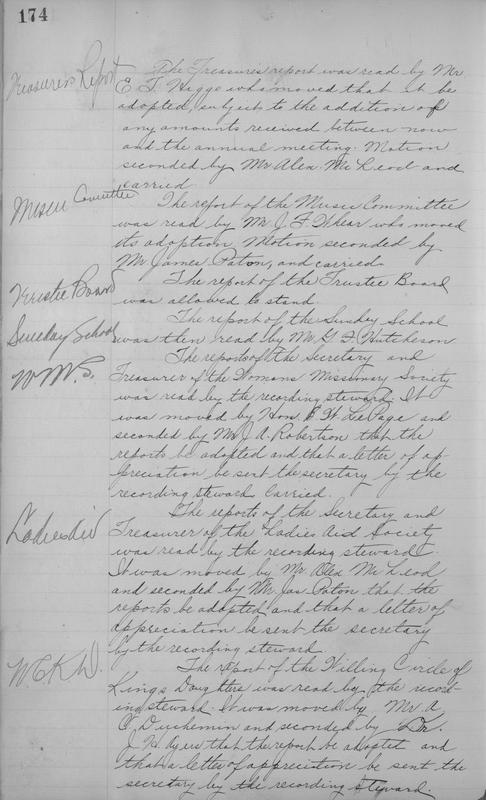 174
Treasurers Report
The Treasures report was read by Mr
E. T. Higgs who moved that it be
adopted, subject to the addition of
any amounts received between now
and the annual meeting. Motion
seconded by Mr Alex. McLeod and
carried
Music Committee
The report of the Music Committee
was read by Mr J. F. Whear who moved
its adoption, Motion seconded by
Mr James Paton, and carried.
Trustee Board
The report of the Trustee Board
was allowed to stand.
Sunday School
The report of the Sunday School
was then read by Mr G. F. Hutcheson
W.M.S.
The reports of the Secretary and
Treasurer of the Womans Missionary Society
was read by the recording steward. It
was moved by Hon. B. W. LePage and
seconded by Mr J. A. Robertson that the
reports be adopted and that a letter of ap
preciation be sent the secretary by the
recording steward. Carried.
Ladies Aid
The reports of the Secretary and
Treasurer of the Ladies Aid Society
was read by the recording steward.
It was moved by Mr Alex McLeod
and seconded by Mr Jas Paton that the
reports be adopted and that a letter of
appreciation be sent the secretary
by the recording steward.
W.C.K.D.
The report of the Willing Circle of
Kings Daughters was read by the record-
ing steward. It was moved by Mr. A
Duchemin and seconded by Dr.
J. H. Ayers that the report be adopted and
that a letter of appreciation be sent the
secretary by the recording steward.